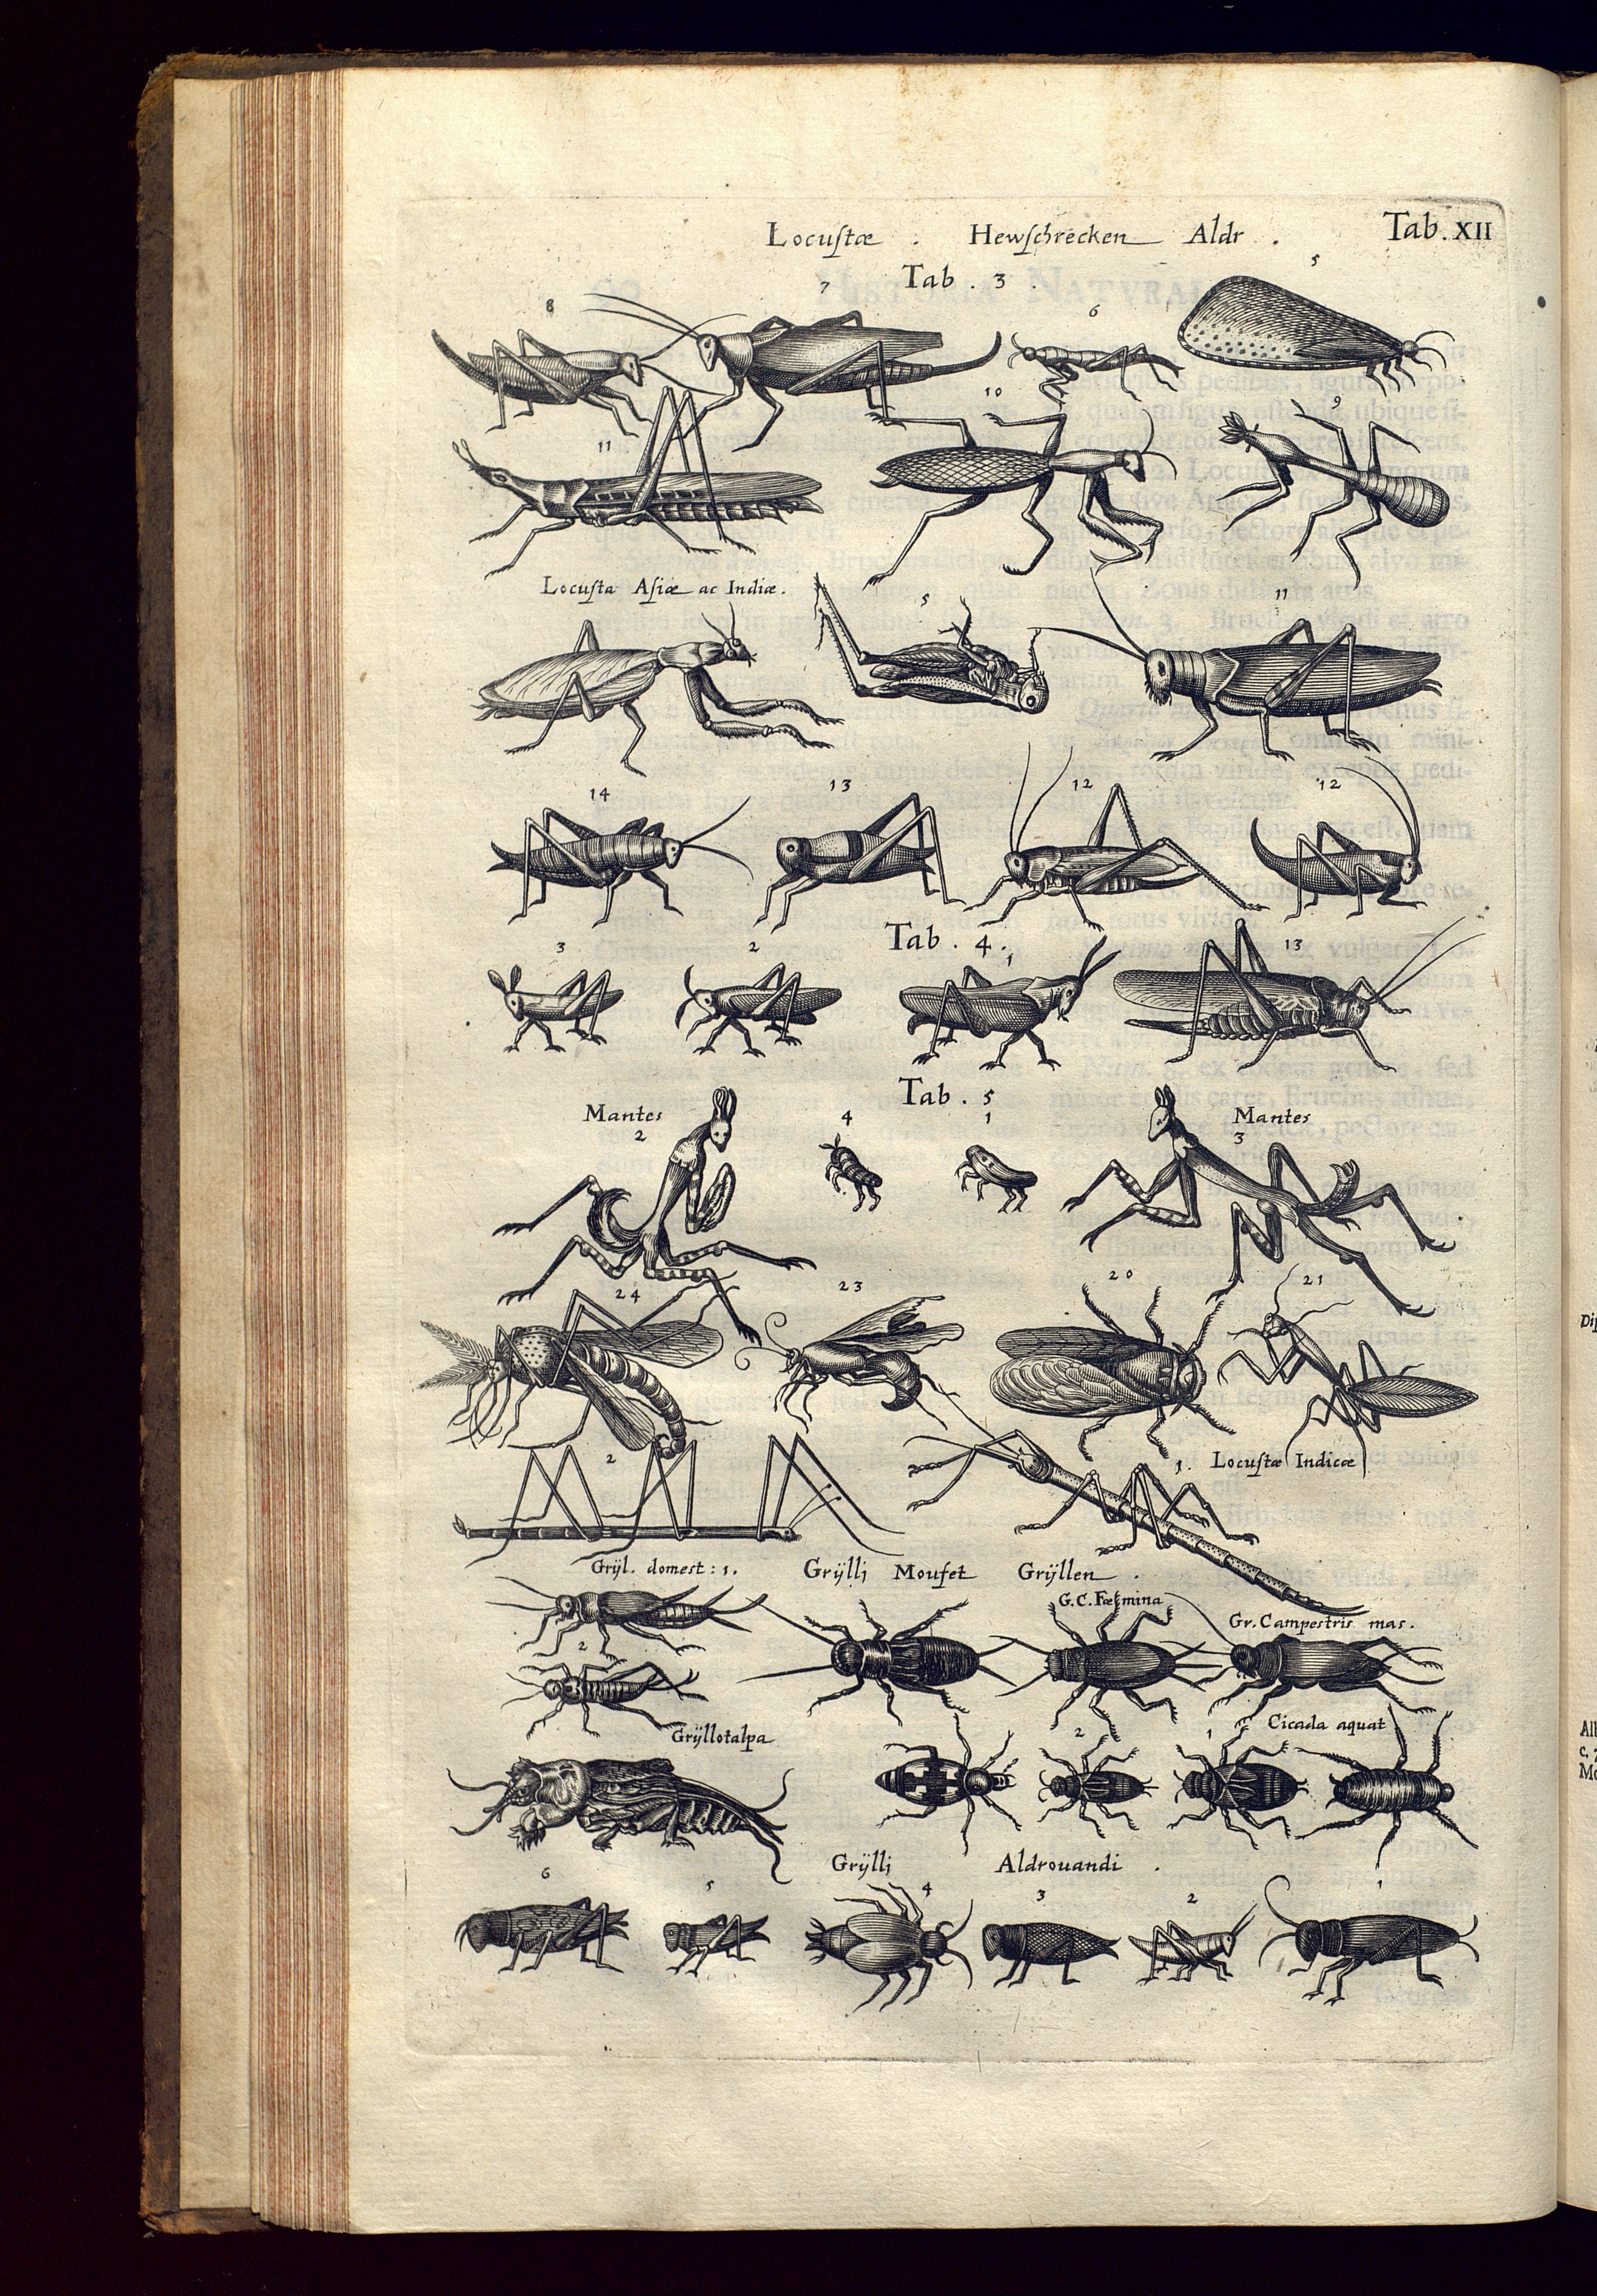 Locuſtæ : Hewſchrecken Aldr .
Tab. XII
Tab . 3 .
8 7 6 5
10 9
11
Locuſta Aſiæ ac Indiæ .
5 11
14 13 12 12
Tab . 4 .
3 2 1 13
Tab . 5
Mantes 2
4 1
Mantes 3
24 23 20 21
2
1. Locuſtæ Indicæ
Grÿl. domest : 1 . Grÿllj Moufet Grÿllen .
G. C. Fæmina
Gr. Campestris mas .
2
Grÿllotalpa
2 1 Cicada aquat
Grÿllj Aldrouandi .
6 5 4 3 2 1